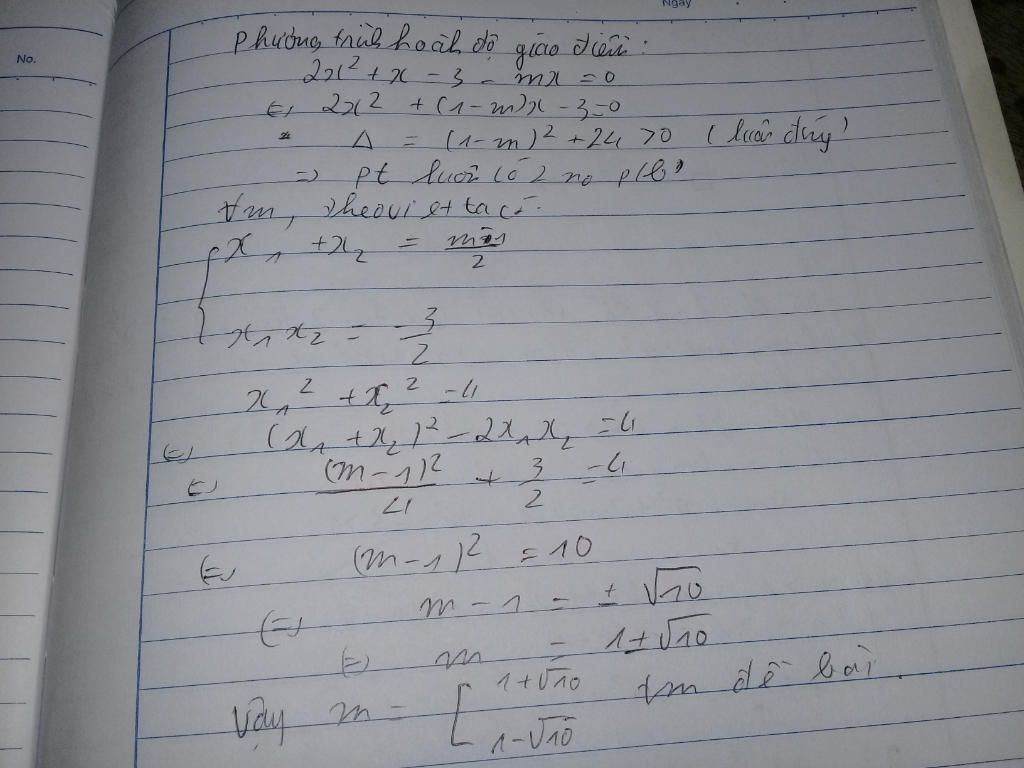 Ngày
No.
Phương trình hoành độ giao điểm:
2x² + x - 3 - mx = 0
⇔ 2x² + (1-m)x - 3 = 0
* Δ = (1-m)² + 24 > 0 (luôn đúng)
⇒ pt luôn có 2 no pb
∀m, theo vi et ta có:
x₁ + x₂ = (m-1)/2
x₁x₂ = -3/2
x₁² + x₂² = 4
⇔ (x₁ + x₂)² - 2x₁x₂ = 4
⇔ (m-1)²/4 + 3/2 = 4
⇔ (m-1)² = 10
⇔ m - 1 = ± √10
⇔ m = 1 ± √10
Vậy m = [ 1+√10 tm đề bài.
1-√10